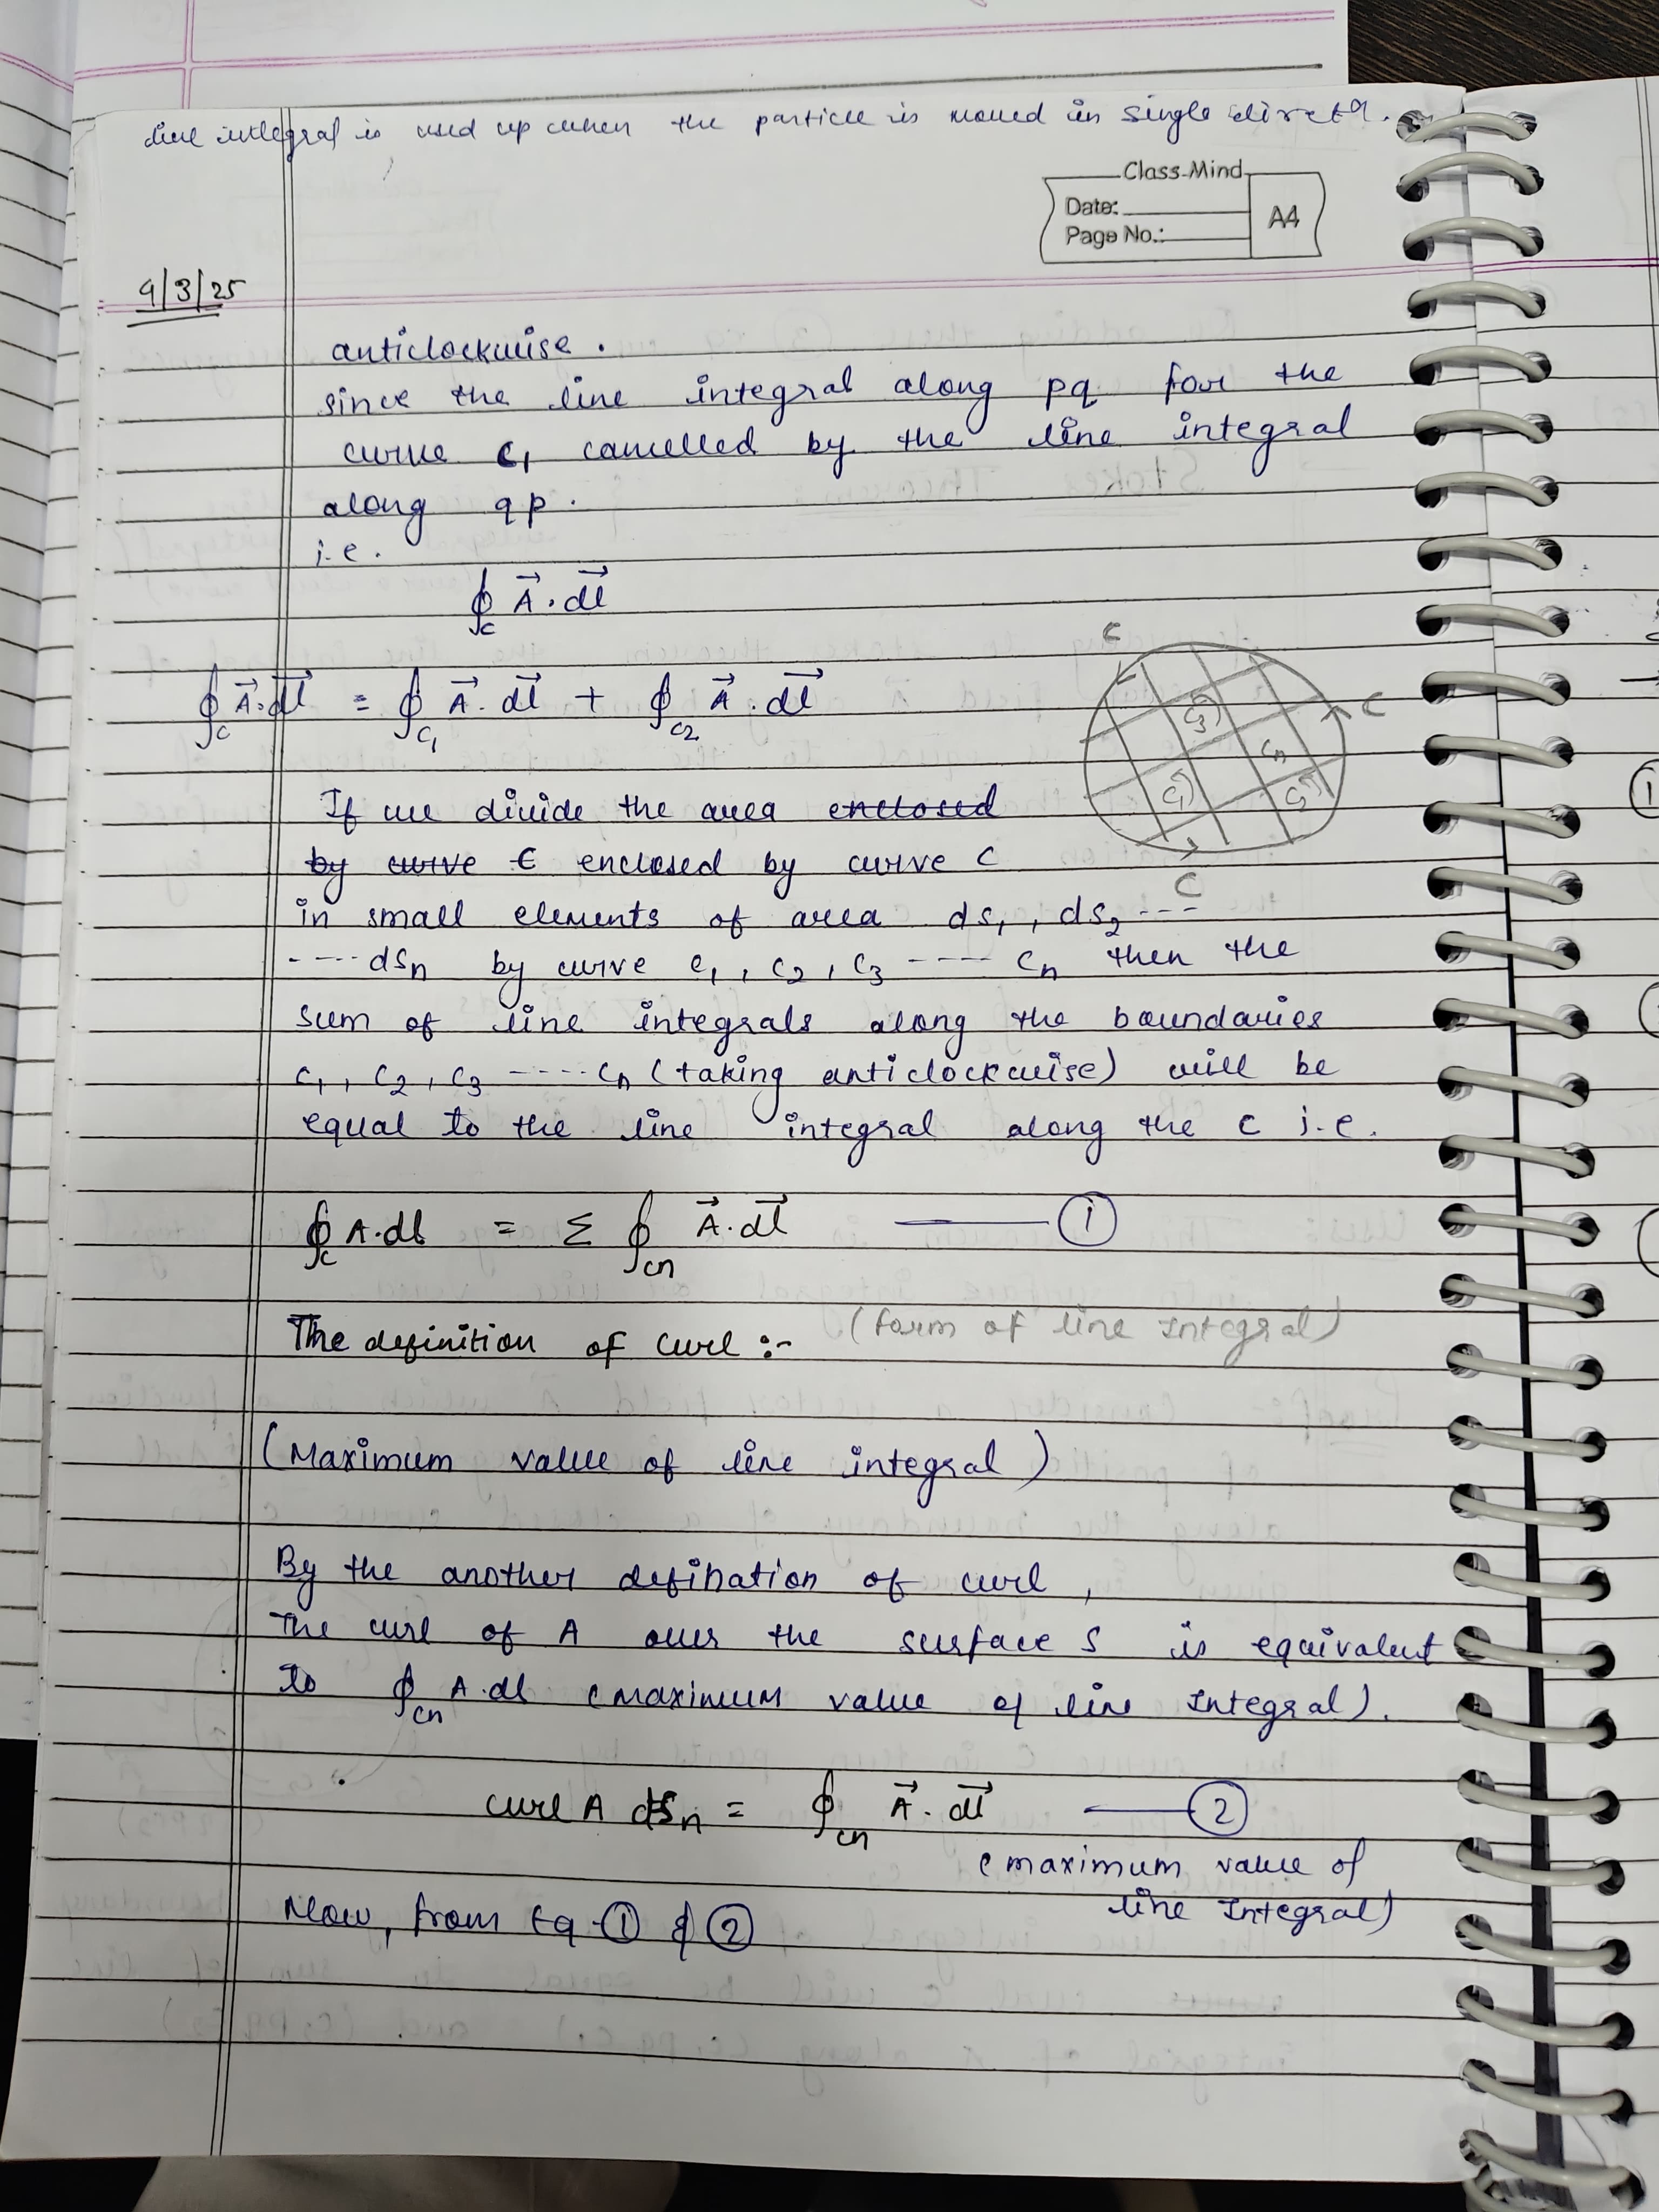 line integral is used up when the particle is moved in single directn.
Class-Mind
Date:
Page No.:
A4
9/3/25
anticlockwise.
since the line integral along pq for the
curve c₁ cancelled by the line integral
along qp.
i.e.
∮c A⃗.dl⃗
∮c A⃗.dl⃗ = ∮c₁ A⃗.dl⃗ + ∮c₂ A⃗.dl⃗
C
C
C₃
Cn
C₁
C
If we divide the area enclosed
by curve C enclosed by curve C
in small elements of area ds₁, ds₂ ---
---- dsn by curve c₁, c₂, c₃ ---- cn then the
sum of line integrals along the boundaries
c₁, c₂, c₃ ----- cn (taking anticlockwise) will be
equal to the line integral along the c i.e.
∮c A.dl = Σ ∮cn A⃗.dl⃗ —— ①
The definition of curl :- (form of line Integral)
(Maximum value of line integral)
By the another defination of curl,
The curl of A over the surface S is equivalent
to ∮cn A.dl (maximum value of line Integral).
curl A dsn = ∮cn A⃗.dl⃗ —— ②
(maximum value of
line Integral)
Now, from Eq-① & ②